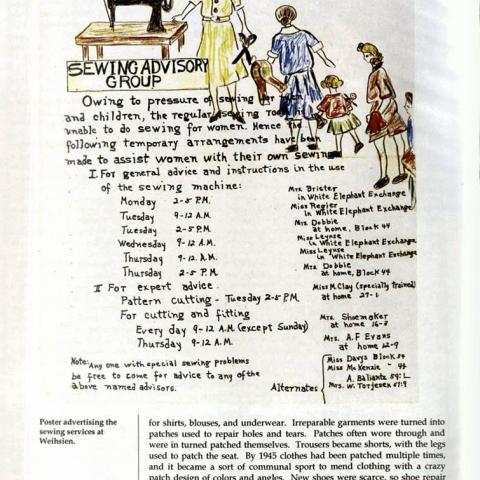 SEWING ADVISORY
GROUP
Owing to pressure of sewing for men
and children, the regular sewing room is
unable to do sewing for women. Hence the
following temporary arrangements have been
made to assist women with their own sewing
I For general advice and instructions in the use
of the sewing machine:
Monday 2-5 P.M. Mrs. Brister
in White Elephant Exchange
Tuesday 9-12 A.M. Miss Regier
in White Elephant Exchange
Tuesday 2-5 P.M. Mrs. Dobbie
at home, Block 44
Wednesday 9-12 A.M. Miss Leynse
in White Elephant Exchange
Thursday 9-12 A.M. Miss Leynse
in White Elephant Exchange
Thursday 2-5 P.M. Mrs. Dobbie
at home, Block 44
II For expert advice
Pattern cutting - Tuesday 2-5 P.M. Miss M. Clay (specially trained)
at home 27-1
For cutting and fitting
Every day 9-12 A.M. (except Sunday) Mrs. Shoemaker
at home 16-8
Thursday 9-12 A.M. Mrs. A.F Evans
at home 12-9
Note: Any one with special sewing problems
be free to come for advice to any of the
above named advisors.
Alternates
Miss Davys Block 24
Miss McKenzie " 44
A. Baliantz
Mrs. W. Torjesen
Poster advertising the
sewing services at
Weihsien.
for shirts, blouses, and underwear. Irreparable garments were turned into
patches used to repair holes and tears. Patches often wore through and
were in turned patched themselves. Trousers became shorts, with the legs
used to patch the seat. By 1945 clothes had been patched multiple times,
and it became a sort of communal sport to mend clothing with a crazy
patch design of colors and angles. New shoes were scarce, so shoe repair